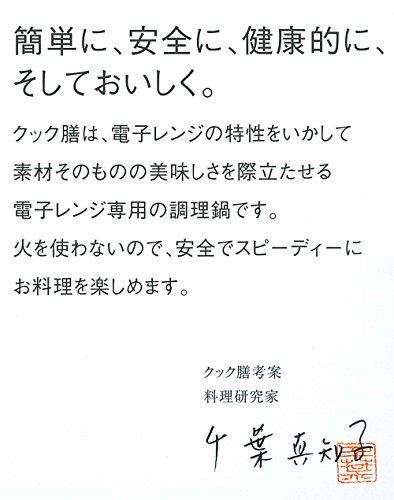 簡単に、安全に、健康的に、
そしておいしく。
クック膳は、電子レンジの特性をいかして
素材そのものの美味しさを際立たせる
電子レンジ専用の調理鍋です。
火を使わないので、安全でスピーディーに
お料理を楽しめます。
クック膳考案
料理研究家
千葉真知子